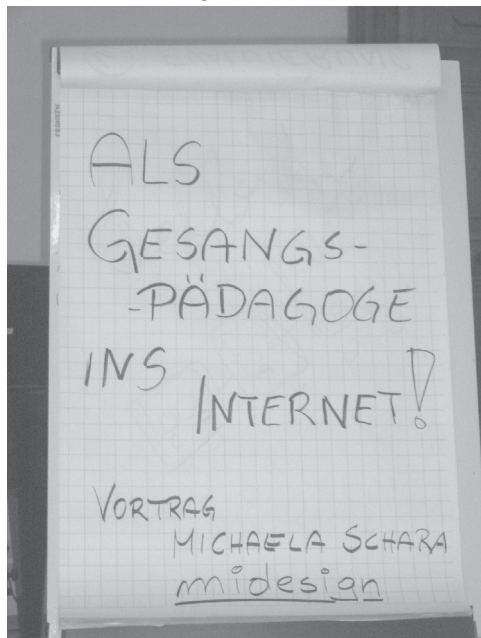 ALS
GESANGS-
-PÄDAGOGE
INS
INTERNET!
VORTRAG
MICHAELA SCHARA
midesign